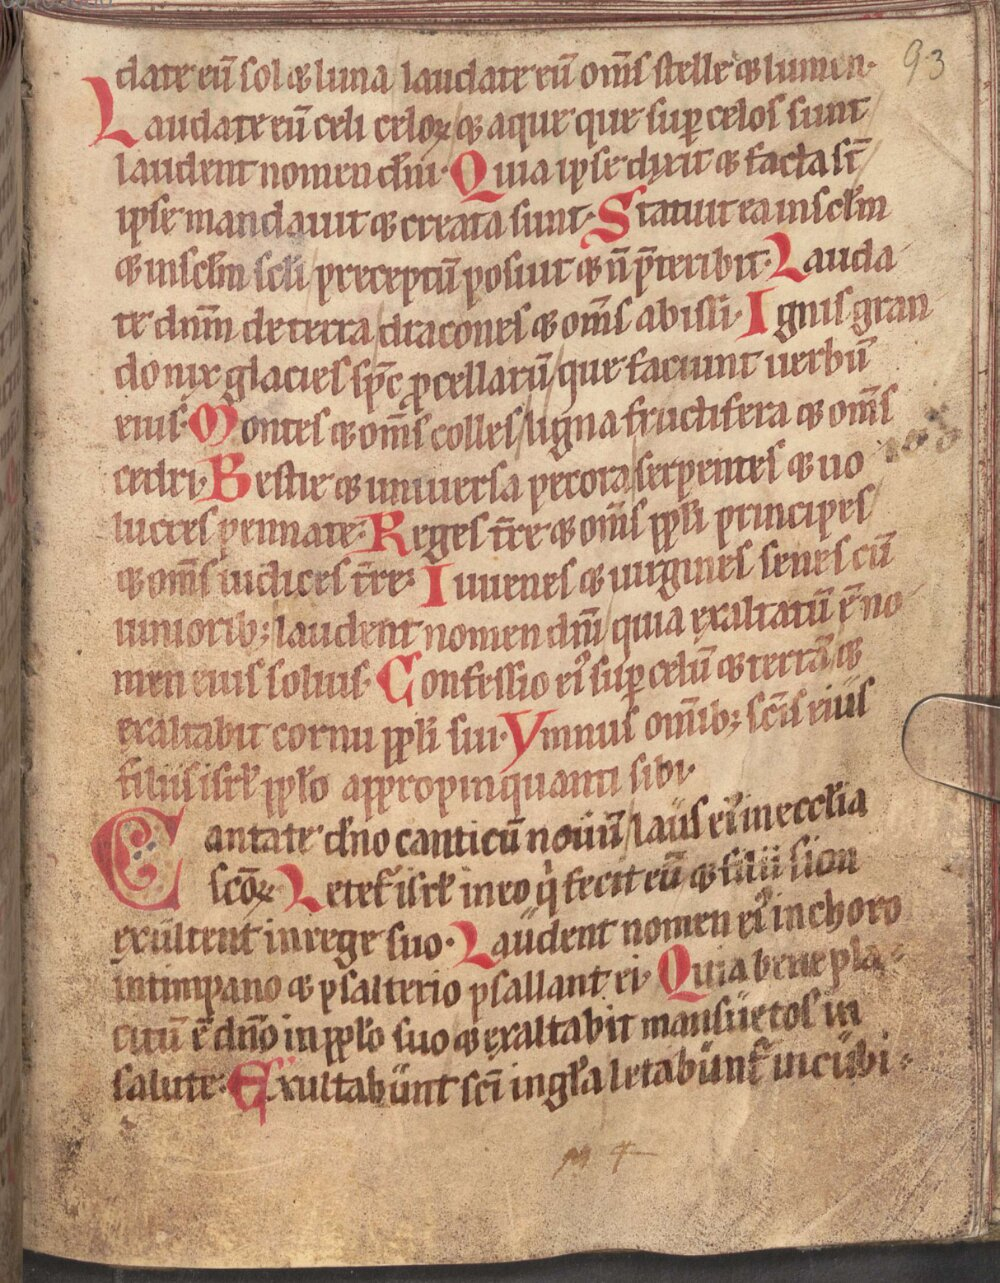 93
date eū sol & luna laudate eū om̄s stelle & lumen·
Laudate eū celi celoꝝ & aque que suꝑ celos sunt
laudent nomen dn̄i· Quia ipse dixit & facta sт̄
ipse mandauit & creata sunt· Statuit ea in sclm̄
& in sclm̄ scl̄i preceptū posuit & n̄ p̄teribit· Lauda
te dnm̄ de terra dracones & om̄s abissi· Ignis gran
do nix glacies sp̄c ꝓcellarū que faciunt uerbū
eius· Montes & om̄s colles ligna fructifera & om̄s
cedri· Bestie & uniuersa pecora serpentes & uo
lucres pennate· Reges t̄re & om̄s ppl̄i principes
& om̄s iudices t̄re· Iuuenes & uirgines senes cū
iuniorib; laudent nomen dn̄i quia exaltatū ē no
men eius solius· Confessio ei᷒ suꝑ celū & terrā &
exaltabit cornu ppl̄i sui· Ymnus om̄ib; sc̄is eius
filiis isrl̄ ppl̄o appropinquanti sibi·
Cantate dn̄o canticū nouū laus ei᷒ in eccl̄ia
sc̄oꝝ Letet᷒ isrl̄ in eo q̇ fecit eū & filii sion
exultent in rege suo· Laudent nomen ei᷒ in choro
in timpano & psalterio psallant ei· Quia bene pla
citū ē dn̄o in ppl̄o suo & exaltabit mansuetos in
salute· Exultabunt sc̄i in gl̄a letabunt᷒ in cubi